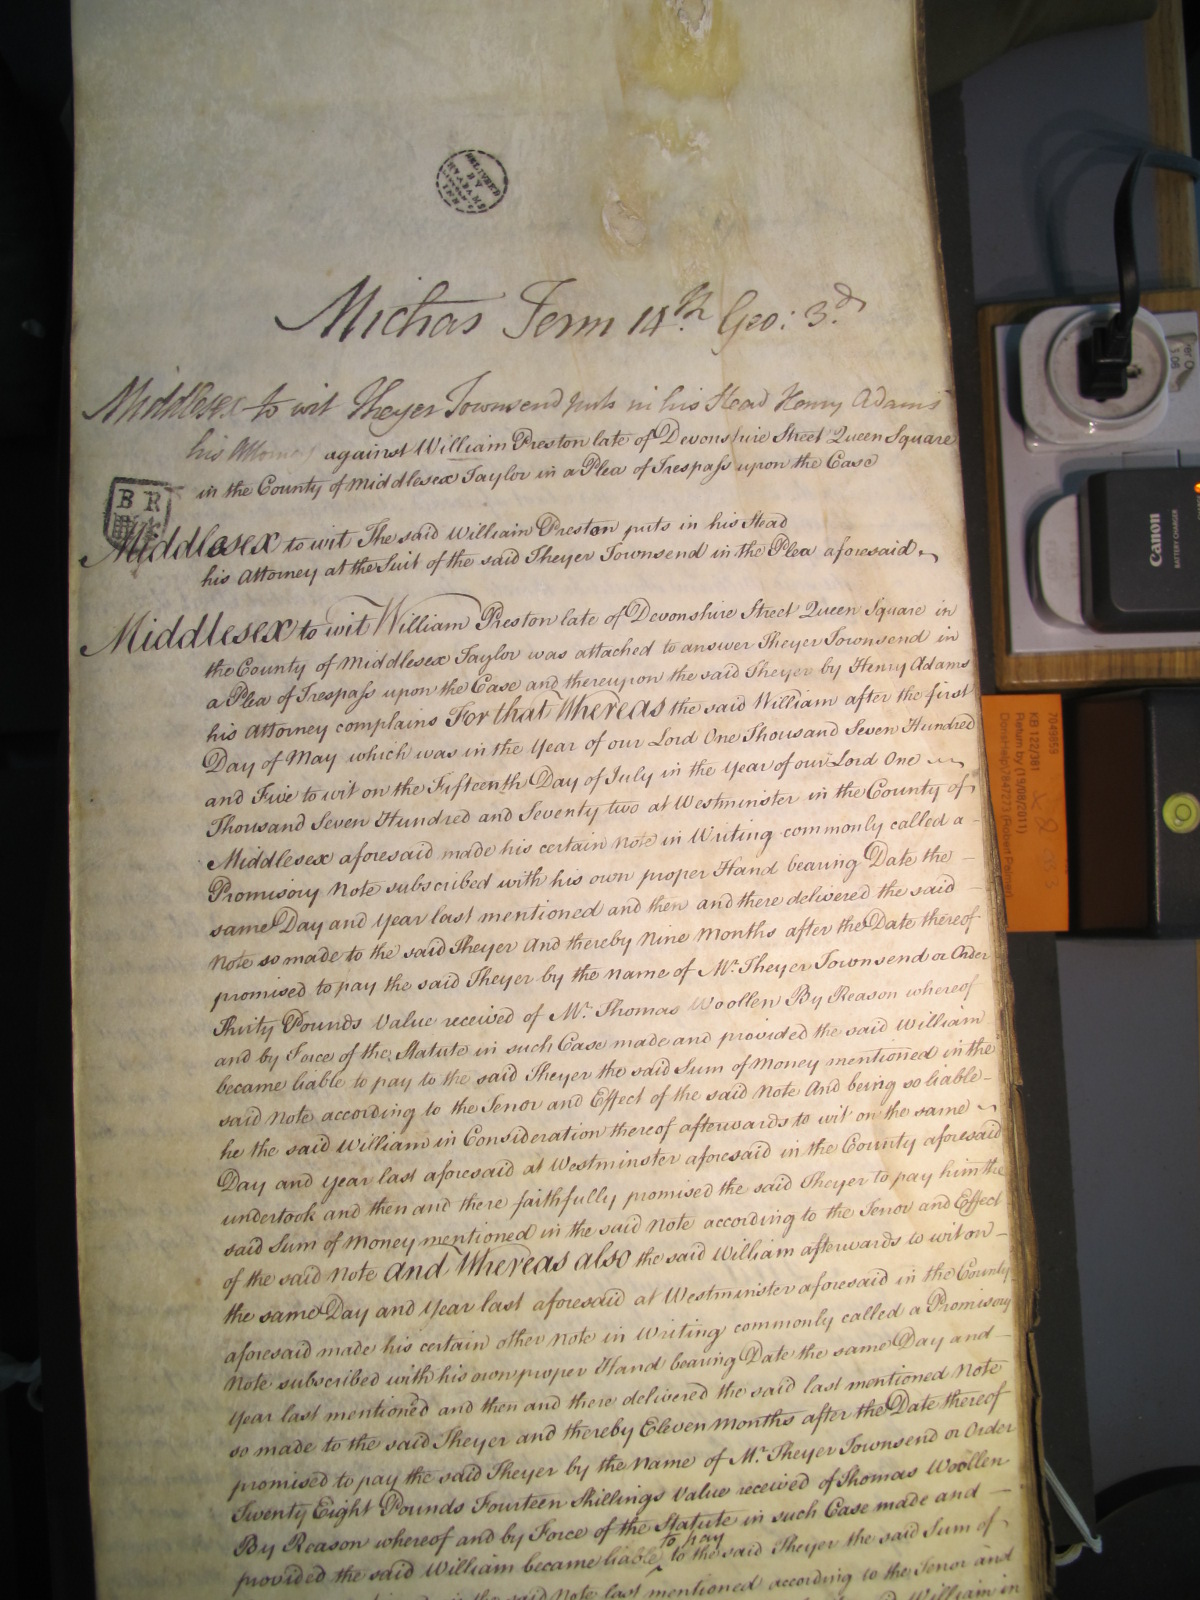 DELIVERED
BY
Michas Term 14th Geo: 3d
Middlesex to wit Theyer Townsend puts in his Stead Henry Adams
his Attorney against William Preston late of Devonshire Street Queen Square
in the County of Middlesex Taylor in a Plea of Trespass upon the Case
B R
Middlesex to wit The said William Preston puts in his Stead
his Attorney at the Suit of the said Theyer Townsend in the Plea aforesaid
Middlesex to wit William Preston late of Devonshire Street Queen Square in
the County of Middlesex Taylor was attached to answer Theyer Townsend in
a Plea of Trespass upon the Case and thereupon the said Theyer by Henry Adams
his Attorney complains For that Whereas the said William after the first
Day of May which was in the Year of our Lord One Thousand Seven Hundred
and Five to wit on the Fifteenth Day of July in the Year of our Lord One
Thousand Seven Hundred and Seventy two at Westminster in the County of
Middlesex aforesaid made his certain Note in Writing commonly called a
Promisory Note subscribed with his own proper Hand bearing Date the
same Day and Year last mentioned and then and there delivered the said
Note so made to the said Theyer And thereby Nine Months after the Date thereof
promised to pay the said Theyer by the Name of Mr. Theyer Townsend or Order
Thirty Pounds Value received of Mr. Thomas Woollen By Reason whereof
and by Force of the Statute in such Case made and provided the said William
became liable to pay to the said Theyer the said Sum of Money mentioned in the
said Note according to the Tenor and Effect of the said Note And being so liable
he the said William in Consideration thereof afterwards to wit on the same
Day and Year last aforesaid at Westminster aforesaid in the County aforesaid
undertook and then and there faithfully promised the said Theyer to pay him the
said Sum of Money mentioned in the said Note according to the Tenor and Effect
of the said Note And Whereas also the said William afterwards to wit on
the same Day and Year last aforesaid at Westminster aforesaid in the County
aforesaid made his certain other Note in Writing commonly called a Promisory
Note subscribed with his own proper Hand bearing Date the same Day and
Year last mentioned and then and there delivered the said last mentioned Note
so made to the said Theyer and thereby Eleven Months after the Date thereof
promised to pay the said Theyer by the Name of Mr. Theyer Townsend or Order
Twenty Eight Pounds Fourteen Shillings Value received of Thomas Woollen
By Reason whereof and by Force of the Statute in such Case made and
provided the said William became liable to pay to the said Theyer the said Sum of
the said Note last mentioned according to the Tenor and
said William in
Canon
BATTERY CHARGER
7049859
KB 122/381
Return by (19/09/2011)